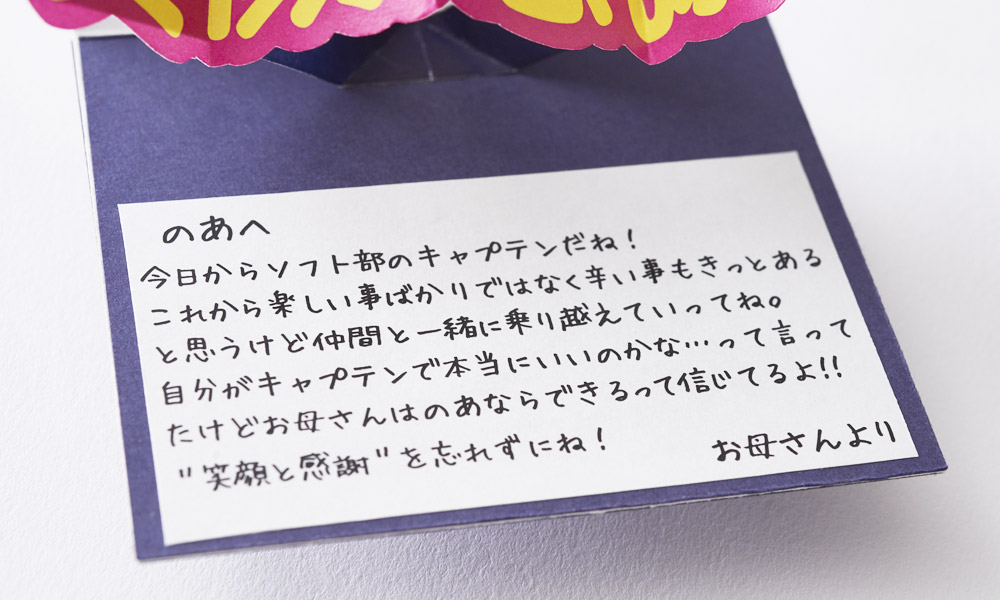 のあへ
今日からソフト部のキャプテンだね！
これから楽しい事ばかりではなく辛い事もきっとある
と思うけど仲間と一緒に乗り越えていってね。
自分がキャプテンで本当にいいのかな…って言って
たけどお母さんはのあならできるって信じてるよ!!
"笑顔と感謝"を忘れずにね！
お母さんより